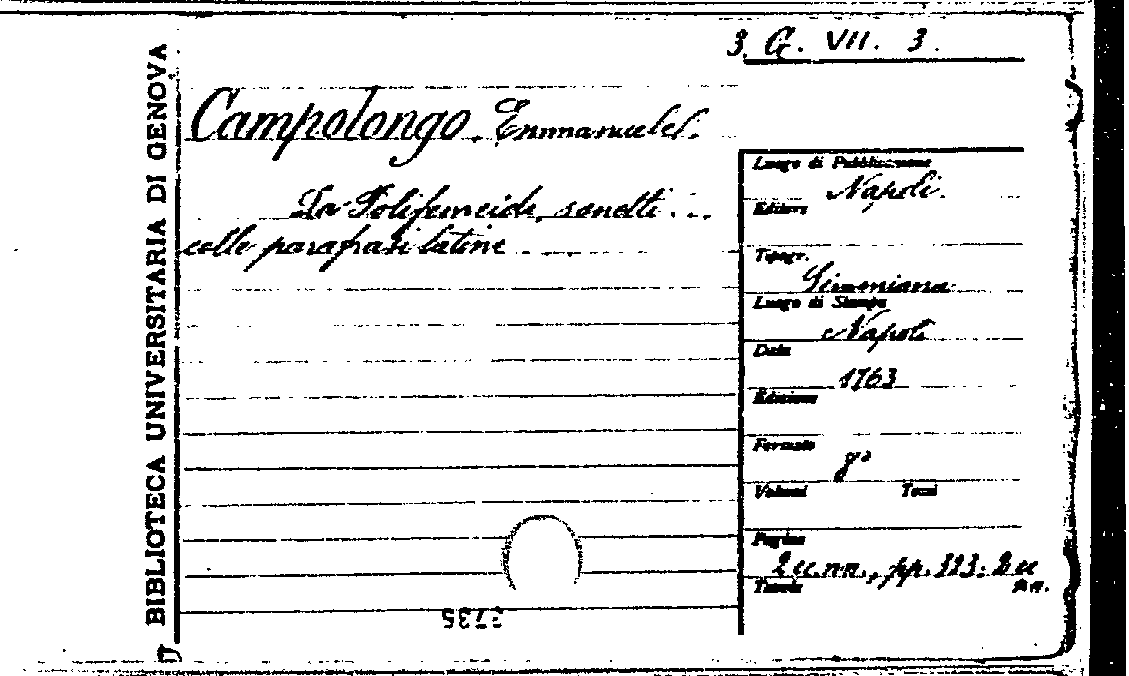 3. G. VII. 3.
BIBLIOTECA UNIVERSITARIA DI GENOVA
Campolongo. Emmanuele.
La Polifemeide, sonetti ...
colle parafrasi latine
Luogo di Pubblicazione
Napoli.
Editore
Tipogr.
Simmiana
Luogo di Stampa
Napoli
Data
1763
Edizione
Formato
8°
Volumi Tomi
Pagine
2 cc. nn., pp. 323. 2 cc
nn.
Tavole